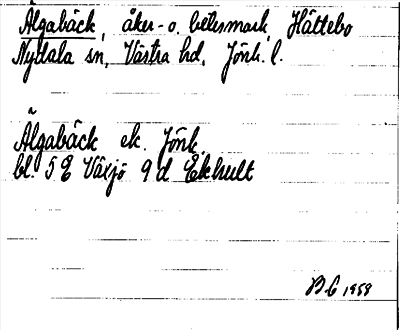 Älgabäck, åker- o. betesmark, Hättebo
Nydala sn, Västra hd, Jönk. l.
Älgabäck ek. Jönk.
bl. 5 E Växjö 9 d Ekhult
B C 1959